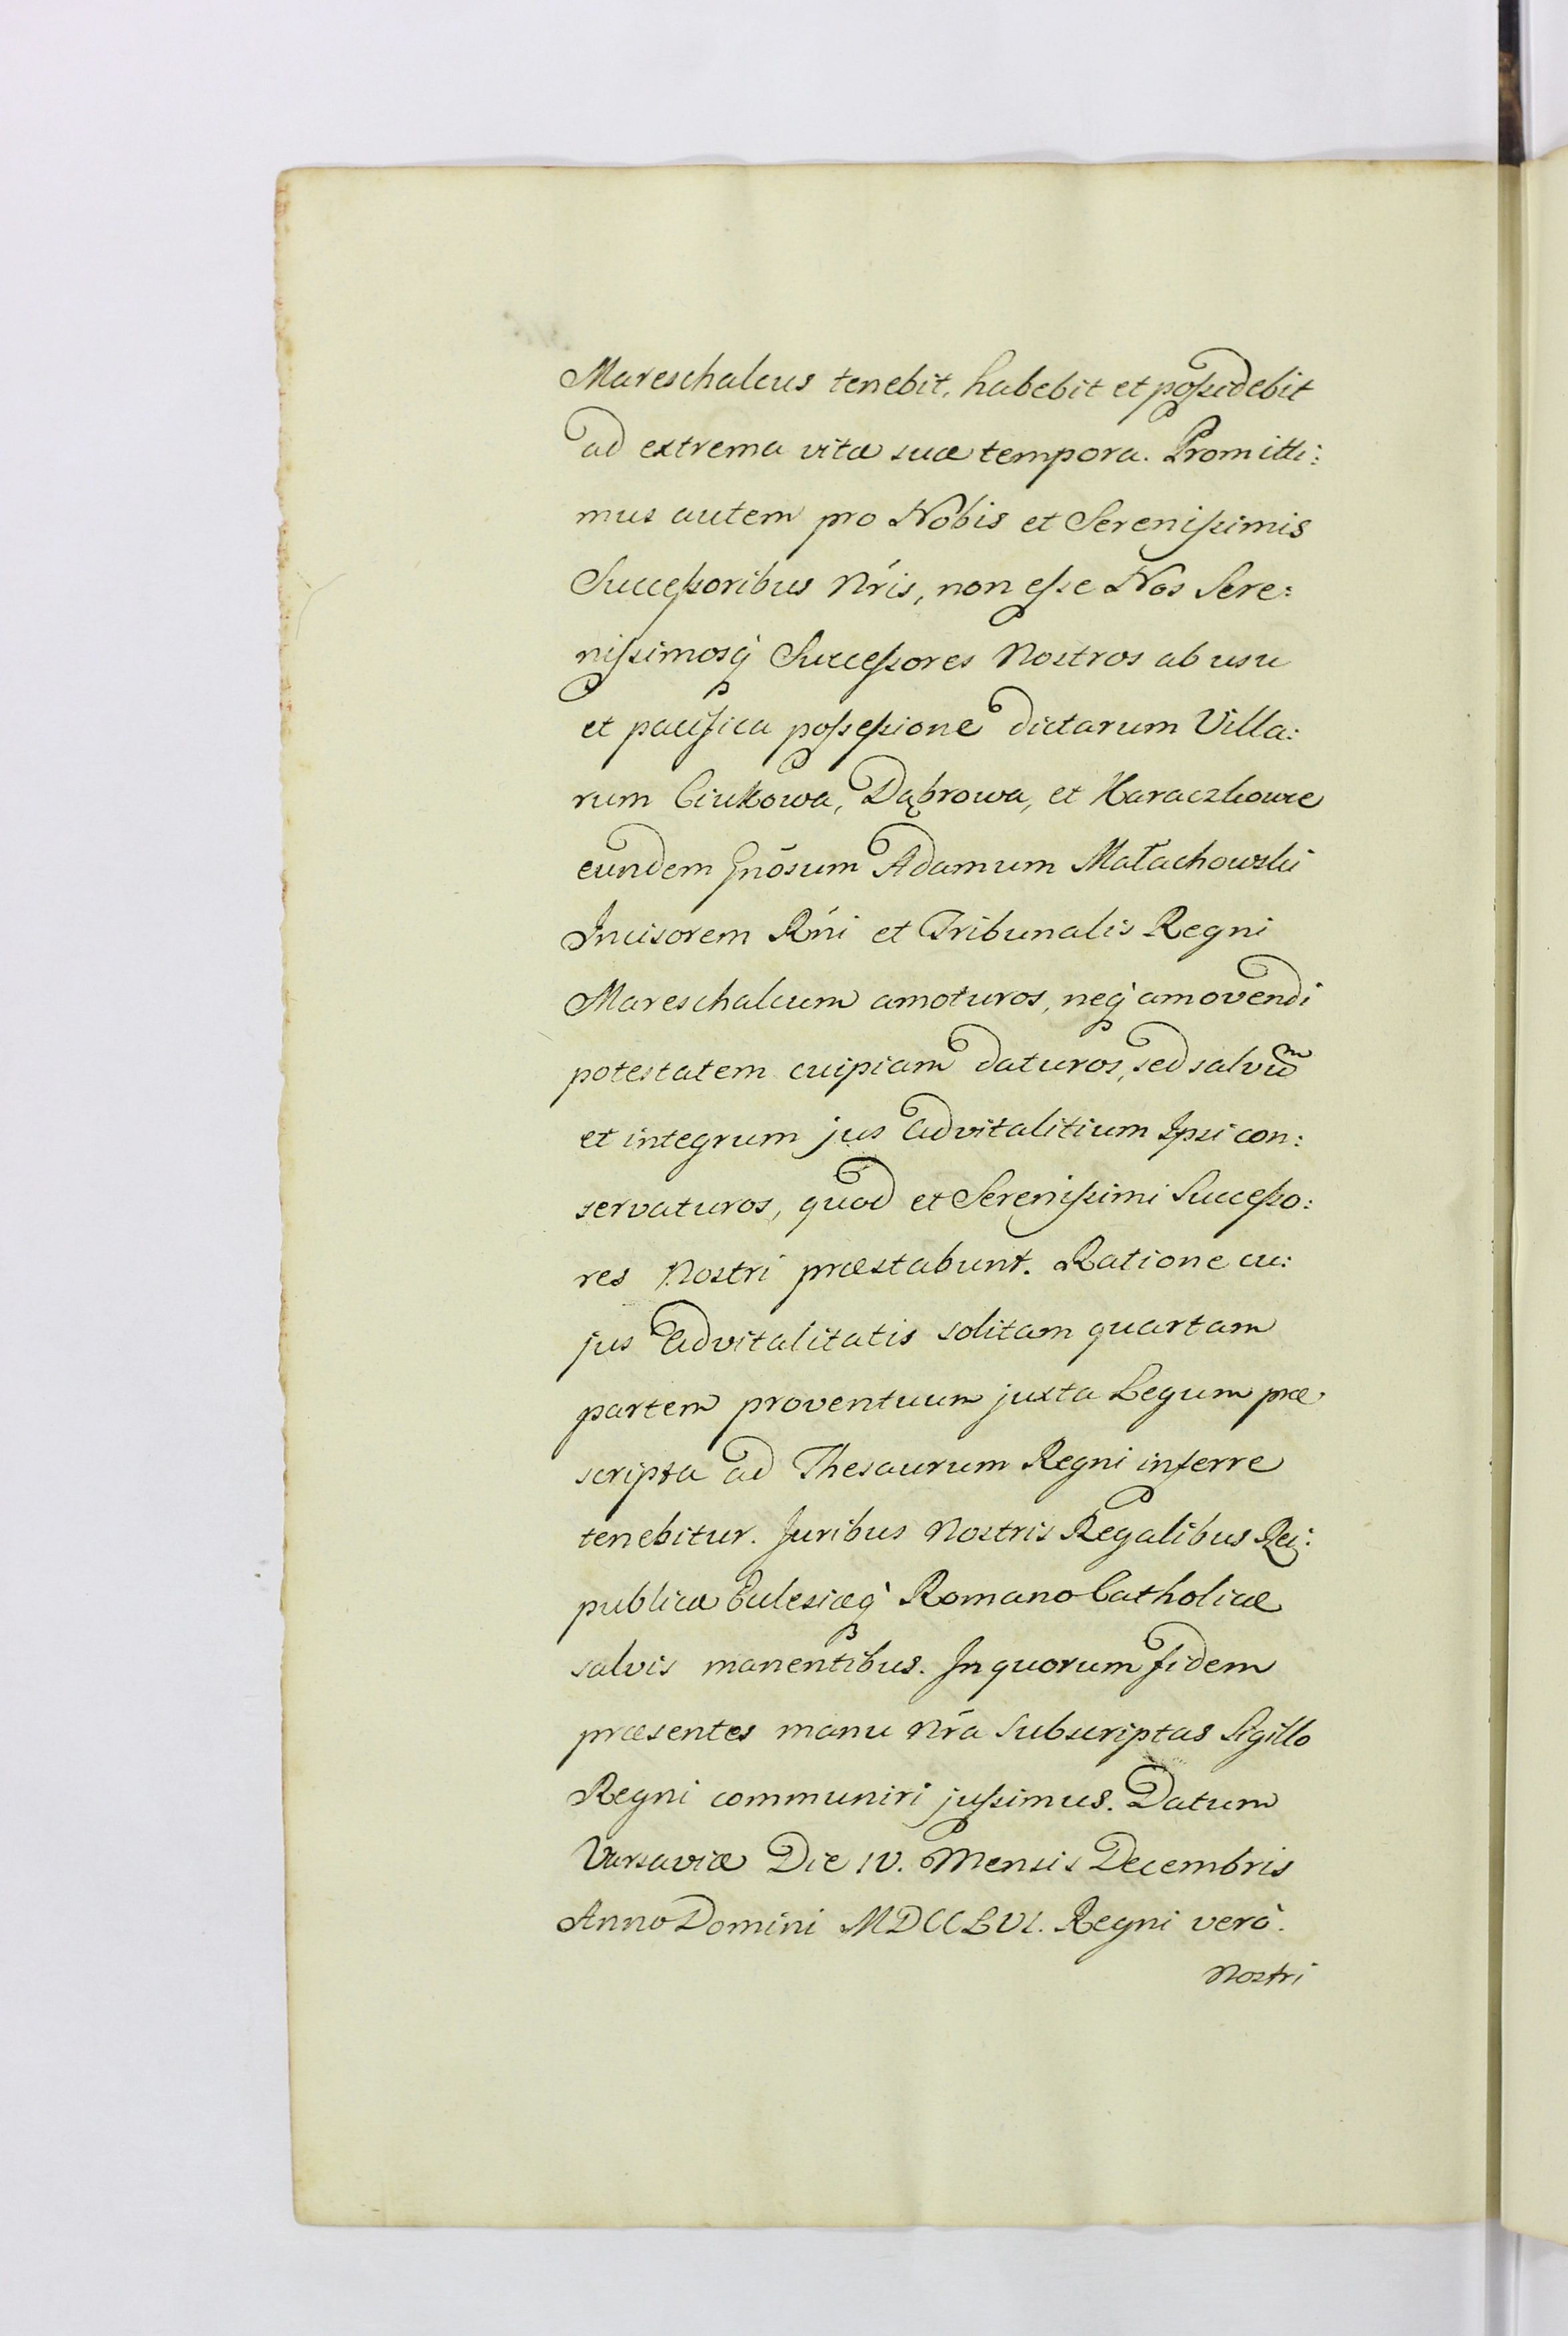 Mareschalcus tenebit, habebit et possidebit
ad extrema vitæ suæ tempora. Promitti:
mus autem pro Nobis et Serenissimis
Successoribus Nr̃is, non esse Nos Sere:
nissimosq̀ Successores Nostros ab usu
et pacifica possessione dictarum Villa:
rum Ciukowa, Dąbrowa, et Karaczkowce
eundem Gnõsum Adamum Małachowski
Incisorem Rñi et Tribunalis Regni
Mareschalcum amoturos, neq̀ amovendi
potestatem cuipiam daturos, sed salvũm
et integrum jus Advitalitium Ipsi con:
servaturos, quod et Serenissimi Successo:
res Nostri præstabunt. Ratione cu:
jus Advitalitatis solitam quartam
partem proventuum juxta Legum præ
scripta ad Thesaurum Regni inferre
tenebitur. Juribus Nostris Regalibus Rei:
publicæ Eclesiæq̀ Romano Catholicæ
salvis manentibus. In quorum fidem
præsentes manu Nr̃a Subscriptas Sigillo
Regni communiri jussimus. Datum
Varsaviæ Die IV. Mensis Decembris
Anno Domini MDCCLVI. Regni verò.
Nostri